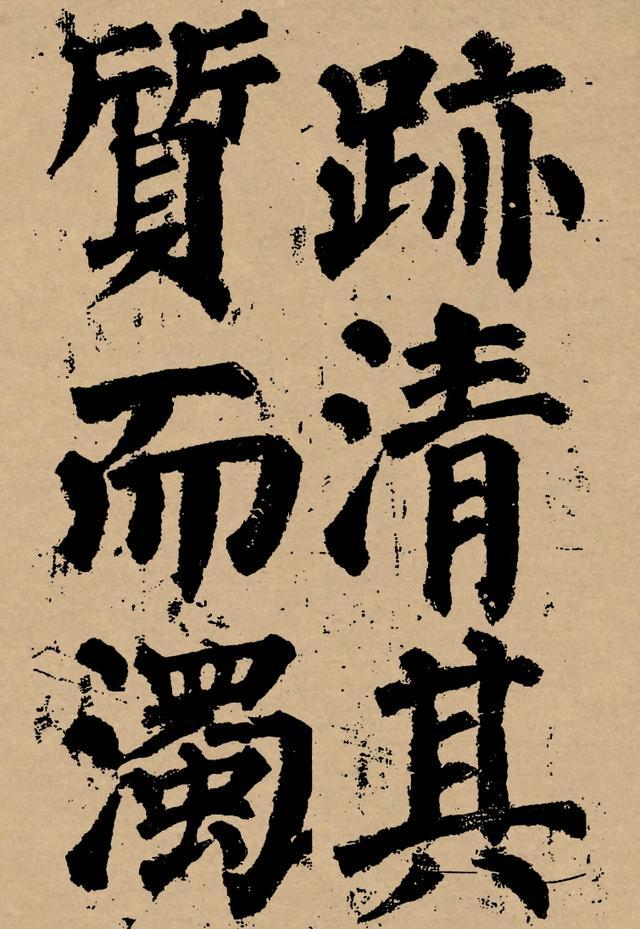 跡清其
質而濁